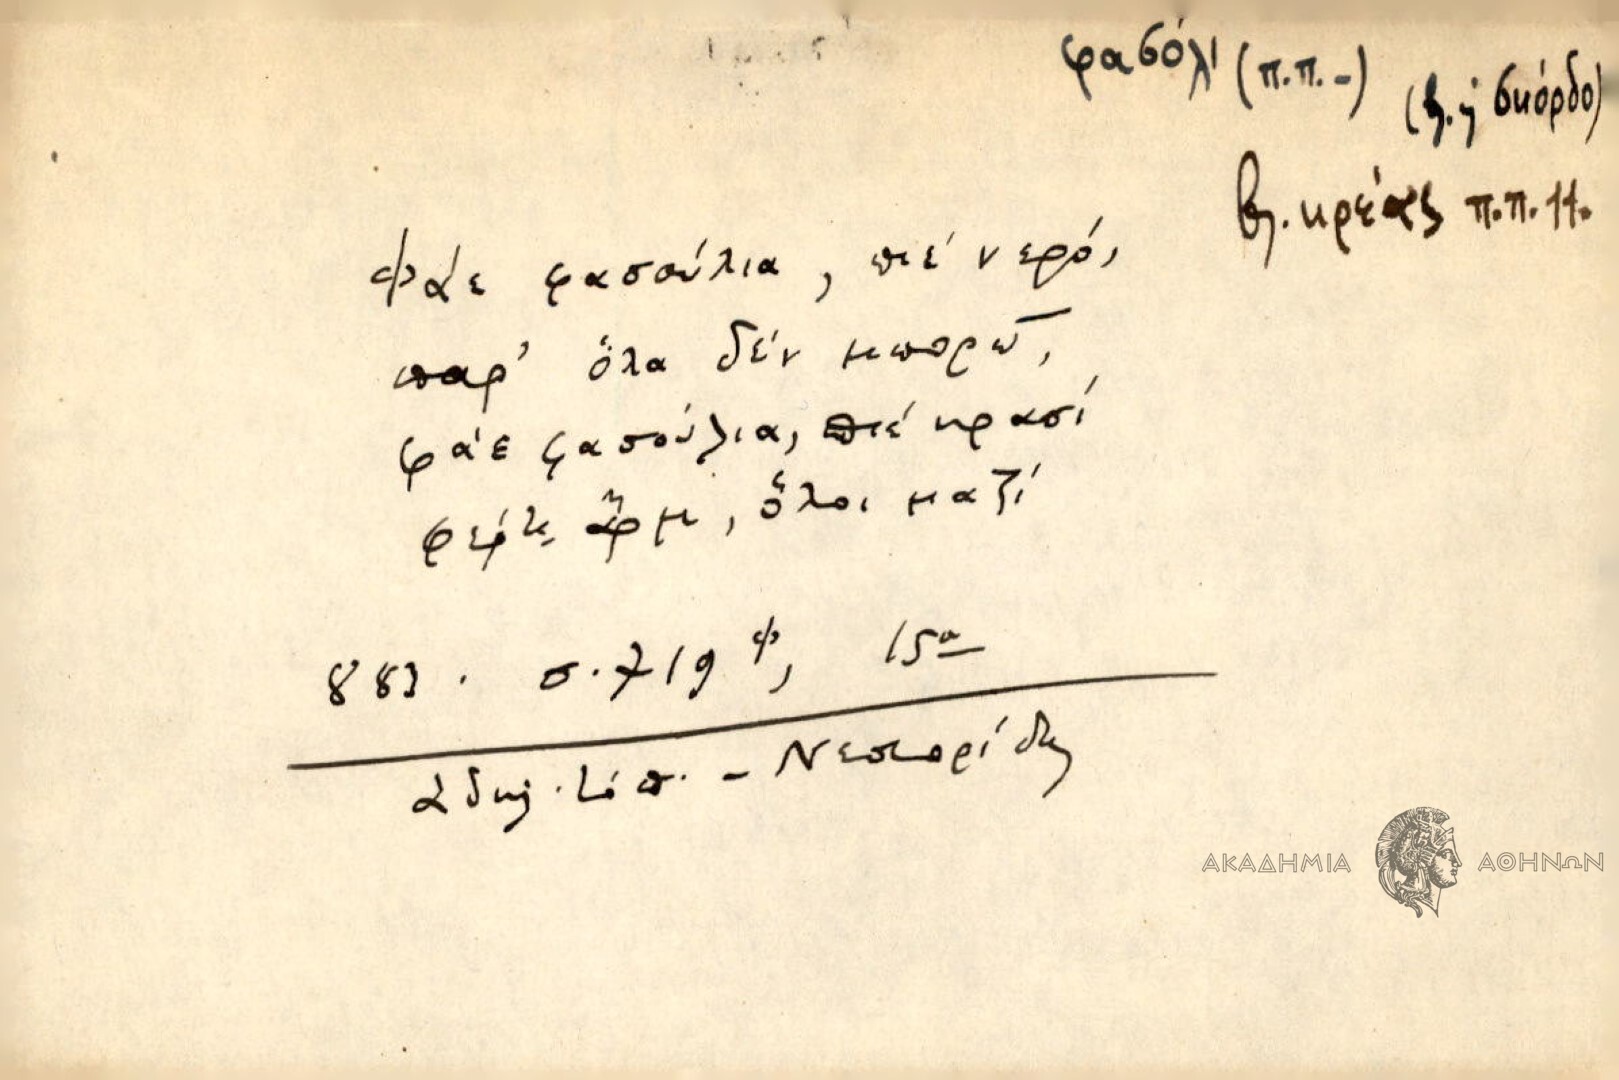 φασόλι (π.π. -)
(β. ἡ σκόρδο)
βλ. κρέας π.π. 11.
Φάε φασούλια, πιέ νερό,
παρ' ὅλα δέν μπορῶ,
φάε φασούλια, πιέ κρασί
φέρτε ἄρμ, ὅλοι μαζί
883. σ. 719 φ, 15α
Ἀδήλ. τόπ. - Νεστορίδης
ΑΚΑΔΗΜΙΑ ΑΘΗΝΩΝ